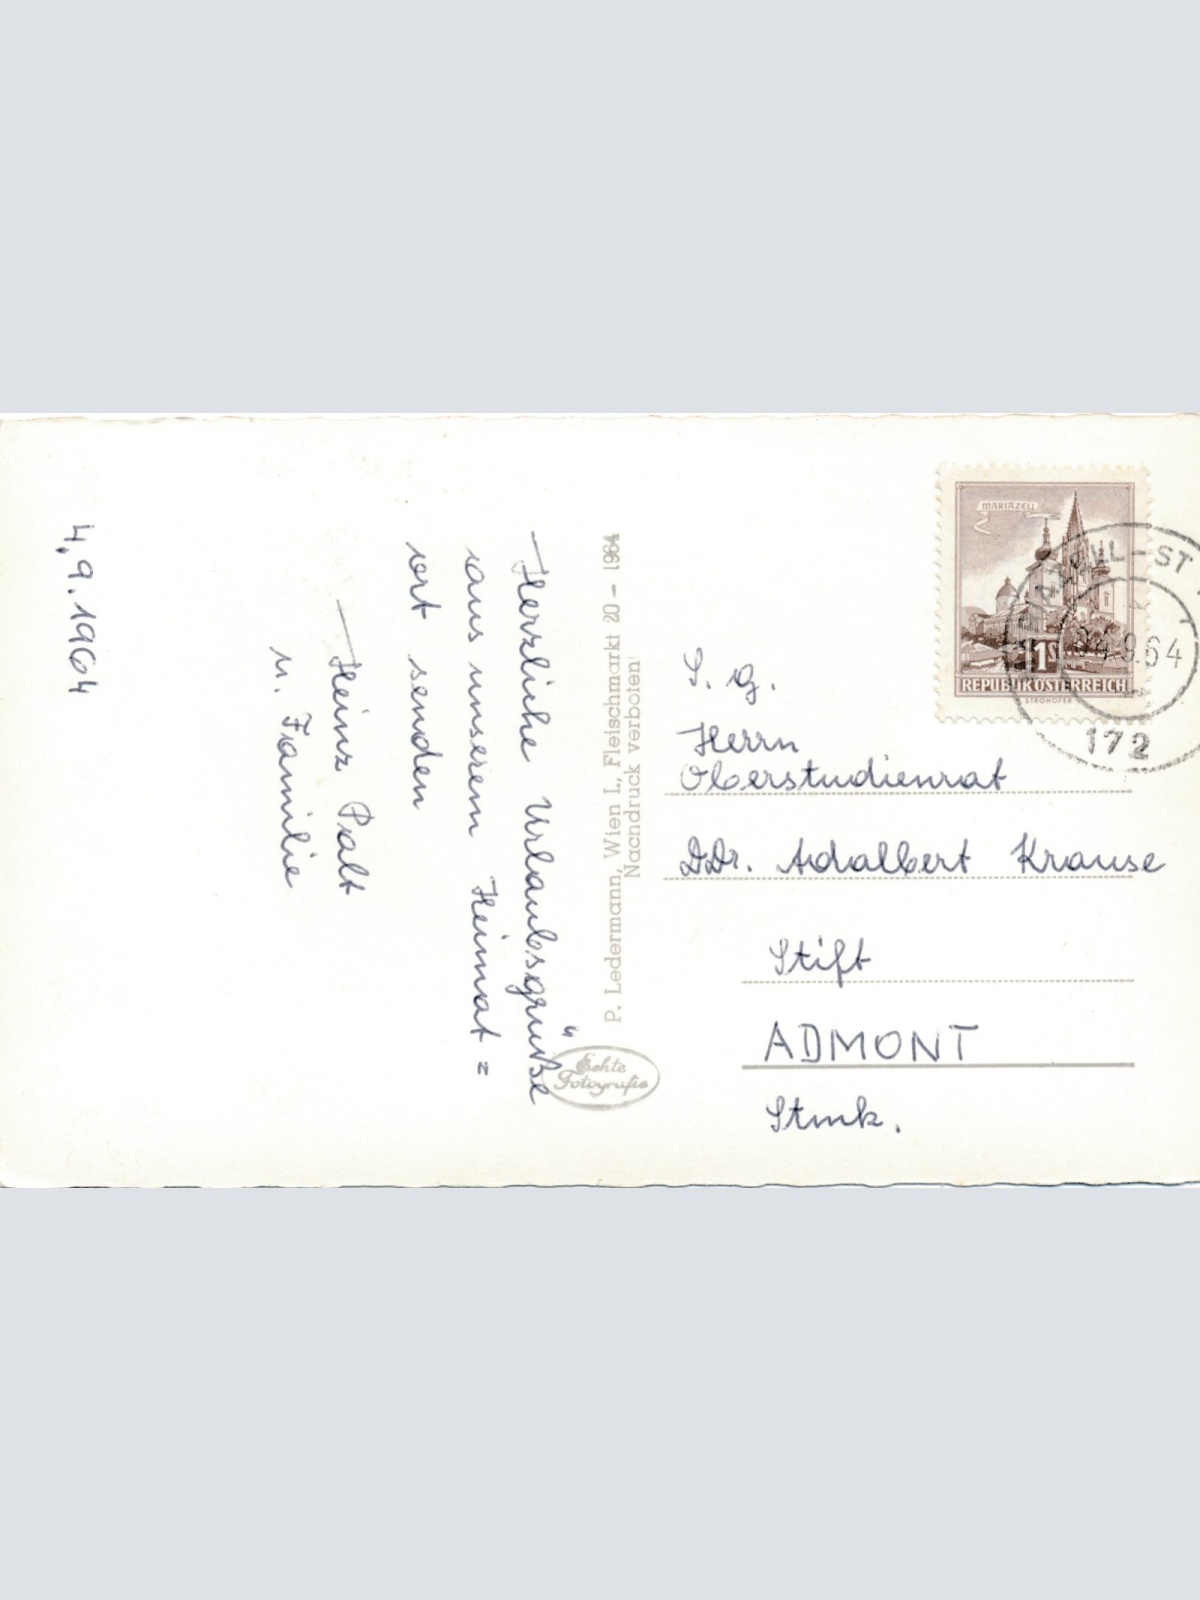 4.9.1964
Herzliche Urlaubsgrüße
aus unserem Heimat =
ort senden
Heinz Palt
u. Familie
P. Ledermann, Wien I., Fleischmarkt 20 – 1964
Nachdruck verboten!
Echte
Fotografie
MARIAZELL
1S
REPUBLIK ÖSTERREICH
STROHOFER
LL-ST
04.9.64
172
S. g.
Herrn
Oberstudienrat
DDr. Adalbert Krause
Stift
ADMONT
Stmk.